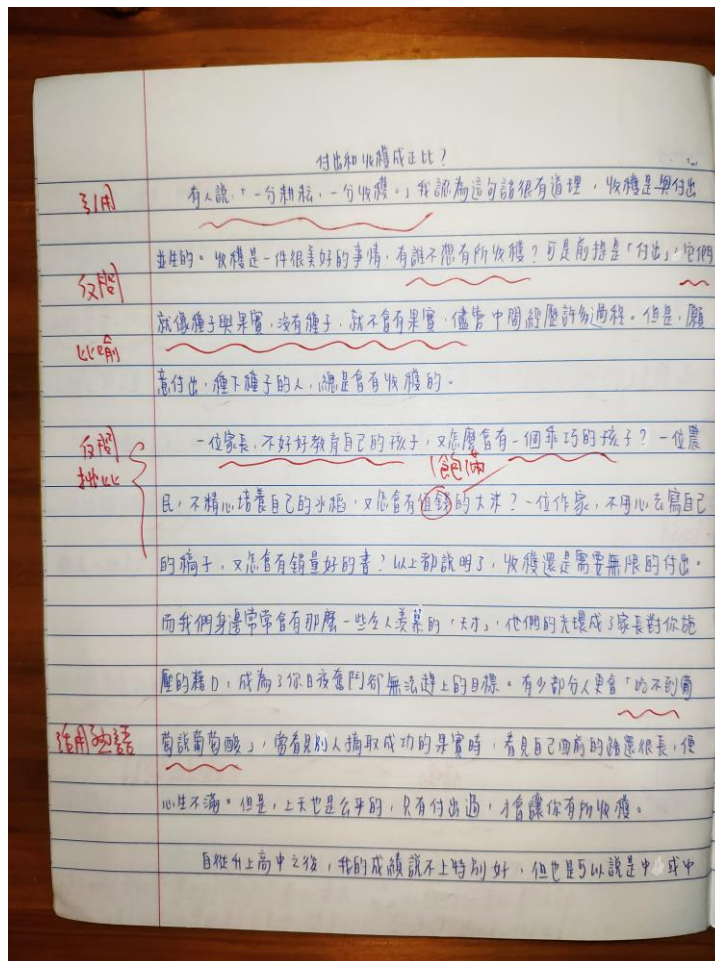 付出和收穫成正比？
引用 有人說，「一分耕耘，一分收穫。」我認為這句話很有道理，收穫是與付出
並生的。收穫是一件很美好的事情，有誰不想有所收穫？可是前提是「付出」，它們
反問
就像種子與果實，沒有種子，就不會有果實，儘管中間經歷許多過程。但是，願
比喻
意付出，種下種子的人，總是會有收穫的。
反問 一位家長，不好好教育自己的孩子，又怎麼會有一個乖巧的孩子？一位農
排比 飽滿
民，不精心培養自己的水稻，又怎會有值錢的大米？一位作家，不用心去寫自己
的稿子，又怎會有銷量好的書？以上都說明了，收穫還是需要無限的付出。
而我們身邊常常會有那麼一些令人羨慕的「天才」，他們的光環成了家長對你施
壓的藉口，成為了你日夜奮鬥卻無法趕上的目標。有少部分人更會「吃不到葡
活用熟語 萄說葡萄酸」，當看見別人摘取成功的果實時，看見自己面前的路還很長，便
心生不滿。但是，上天也是公平的，只有付出過，才會讓你有所收穫。
自從升上高中之後，我的成績說不上特別好，但也是可以說是中 或中